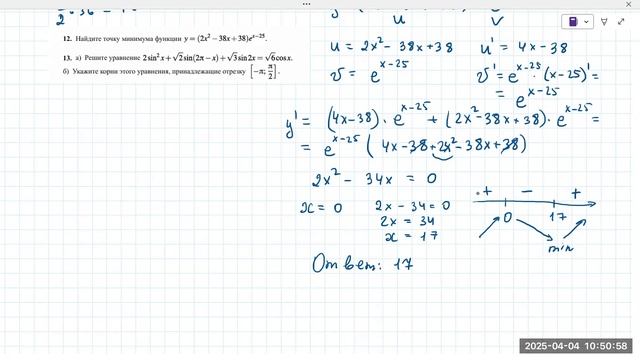 12. Найдите точку минимума функции y = (2x² − 38x + 38)eˣ⁻²⁵.
13. а) Решите уравнение 2 sin² x + √2 sin(2π − x) + √3 sin 2x = √6 cos x.
б) Укажите корни этого уравнения, принадлежащие отрезку [−π; π/2].
u v
u = 2x² − 38x + 38 u' = 4x − 38
v = eˣ⁻²⁵ v' = eˣ⁻²⁵ · (x−25)' =
= eˣ⁻²⁵
y' = (4x−38) · eˣ⁻²⁵ + (2x² − 38x + 38) · eˣ⁻²⁵ =
= eˣ⁻²⁵ (4x − 38 + 2x² − 38x + 38)
2x² − 34x = 0
x = 0 2x − 34 = 0
2x = 34
x = 17
+ − +
0 17
min
Ответ: 17
2025-04-04 10:50:58